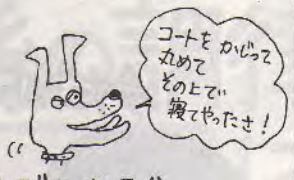 コートを かじって
丸めて
その上で
寝てやったさ!